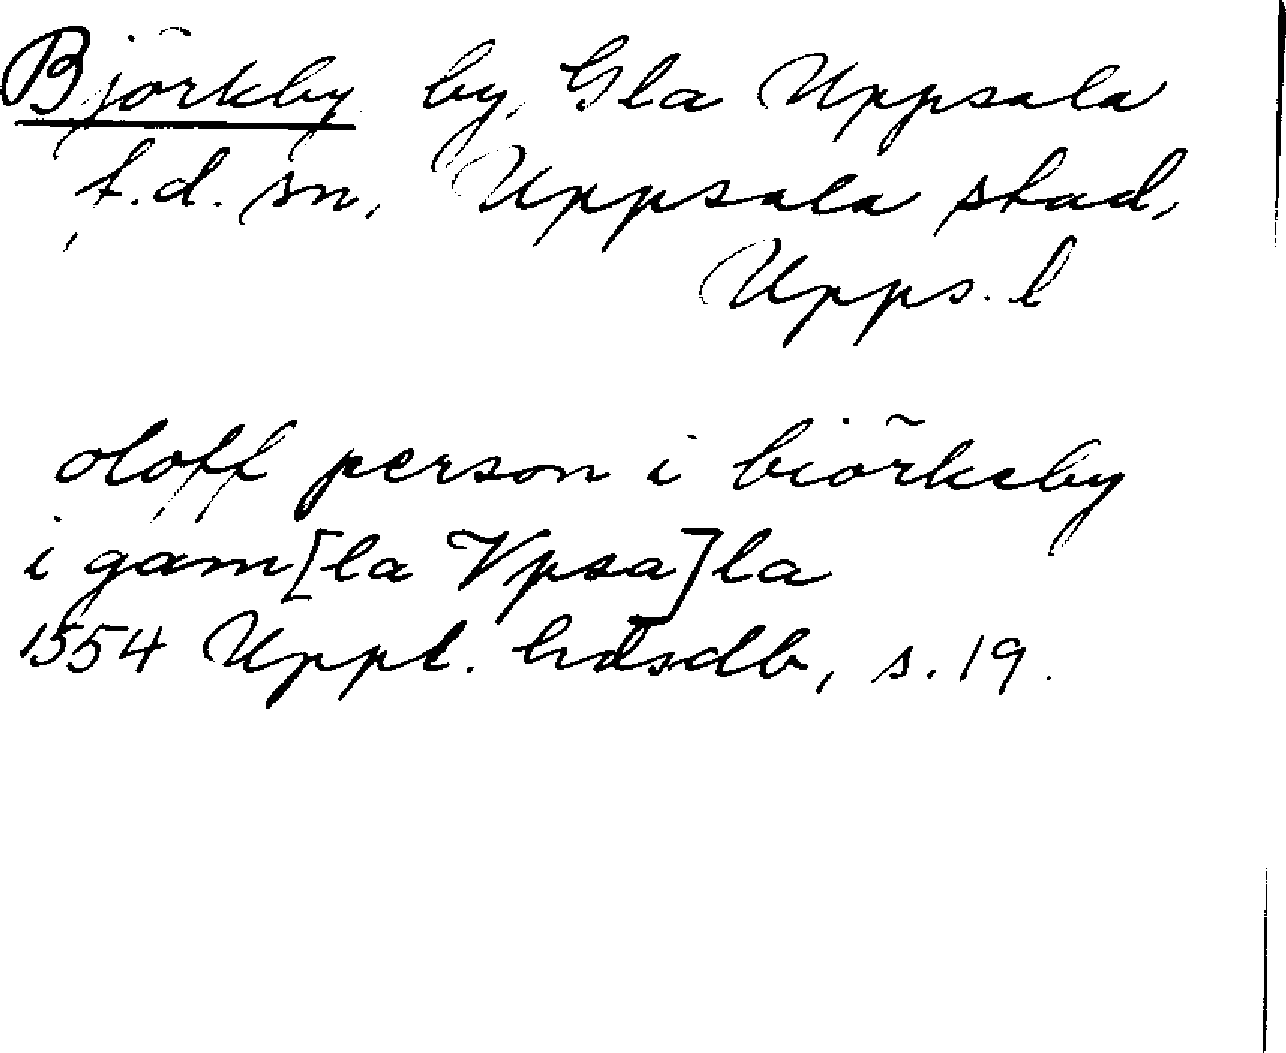 Björkby by, Gla Uppsala
f.d. sn, Uppsala stad,
Upps. l
oloff person i biörkeby
i gam[la Vpsa]la
1554 Uppl. hdsdb, s. 19.